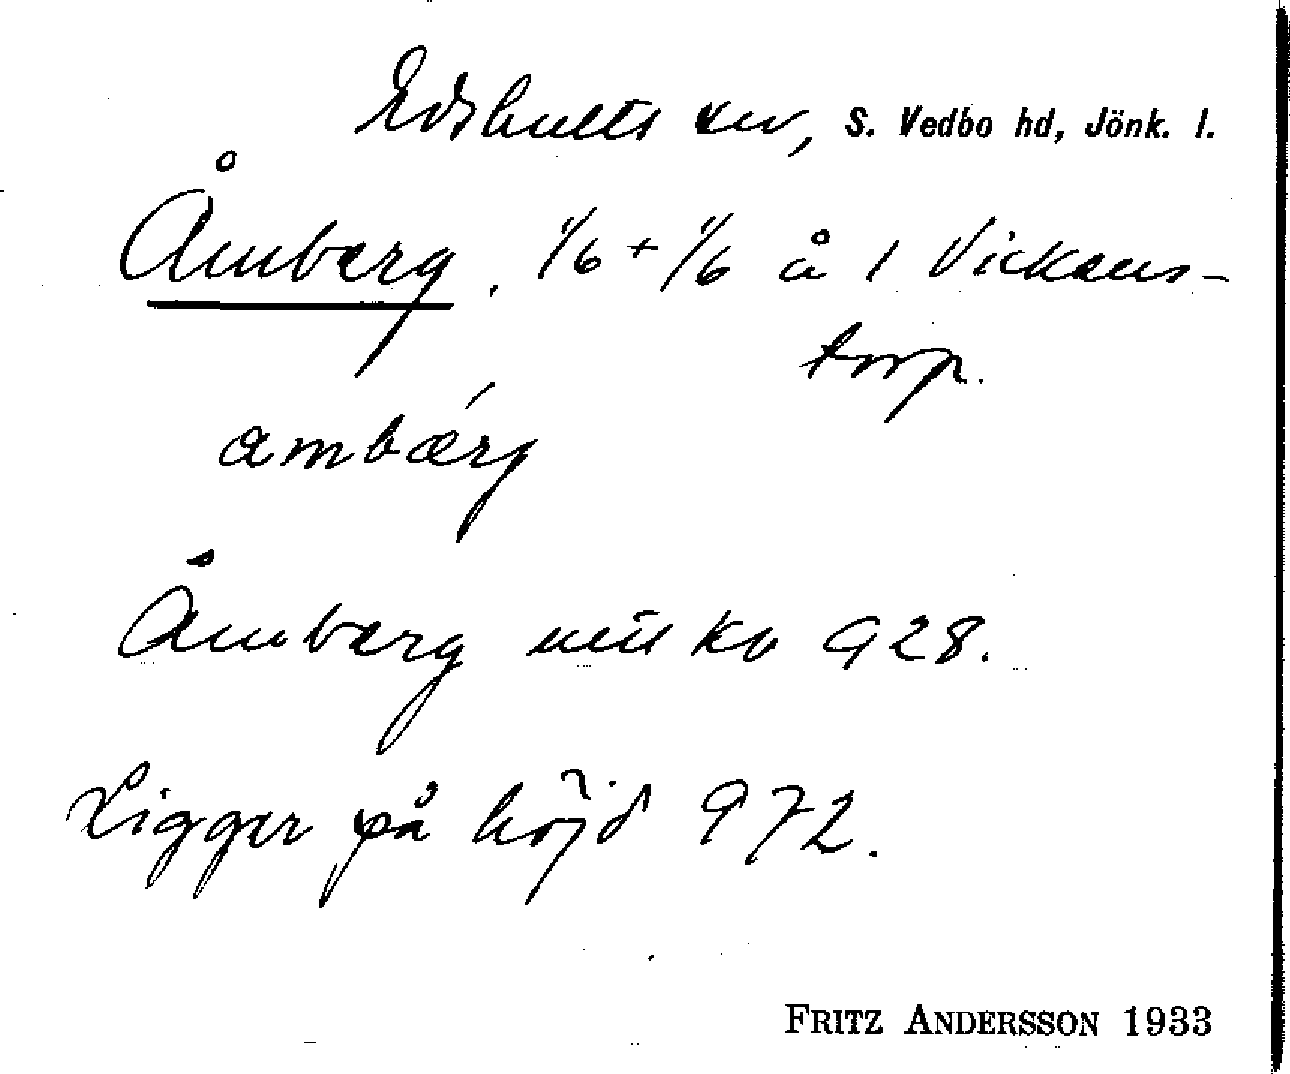 Edshults skn, S. Vedbo hd, Jönk. l.
Åmberg. 1/6 + 1/6 å 1 Vickens-
torp.
ambǽrg
Åmberg mtl ko 928.
Ligger på höjd 972.
FRITZ ANDERSSON 1933